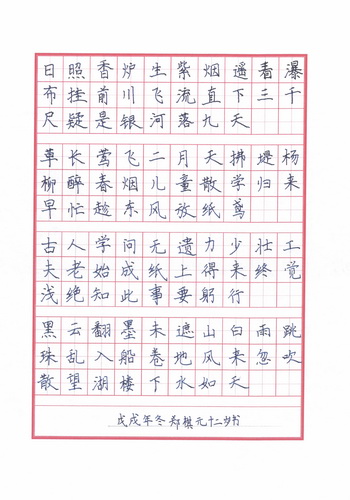 日照香炉生紫烟遥看瀑
布挂前川飞流直下三千
尺疑是银河落九天
草长莺飞二月天拂堤杨
柳醉春烟儿童散学归来
早忙趁东风放纸鸢
古人学问无遗力少壮工
夫老始成纸上得来终觉
浅绝知此事要躬行
黑云翻墨未遮山白雨跳
珠乱入船卷地风来忽吹
散望湖楼下水如天
戊戌年冬郑棋元十二岁书